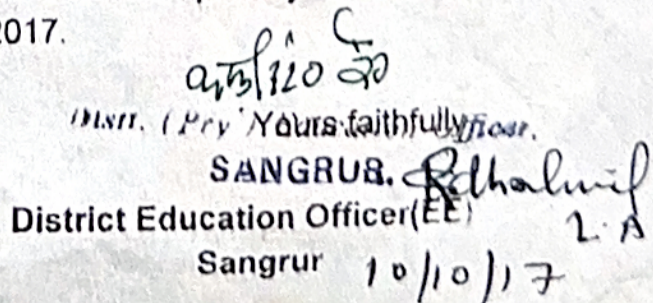 2017.
Distt. (Pry
Yours faithfully
SANGRUR.
District Education Officer(EE)
L.A
Sangrur 10/10/17